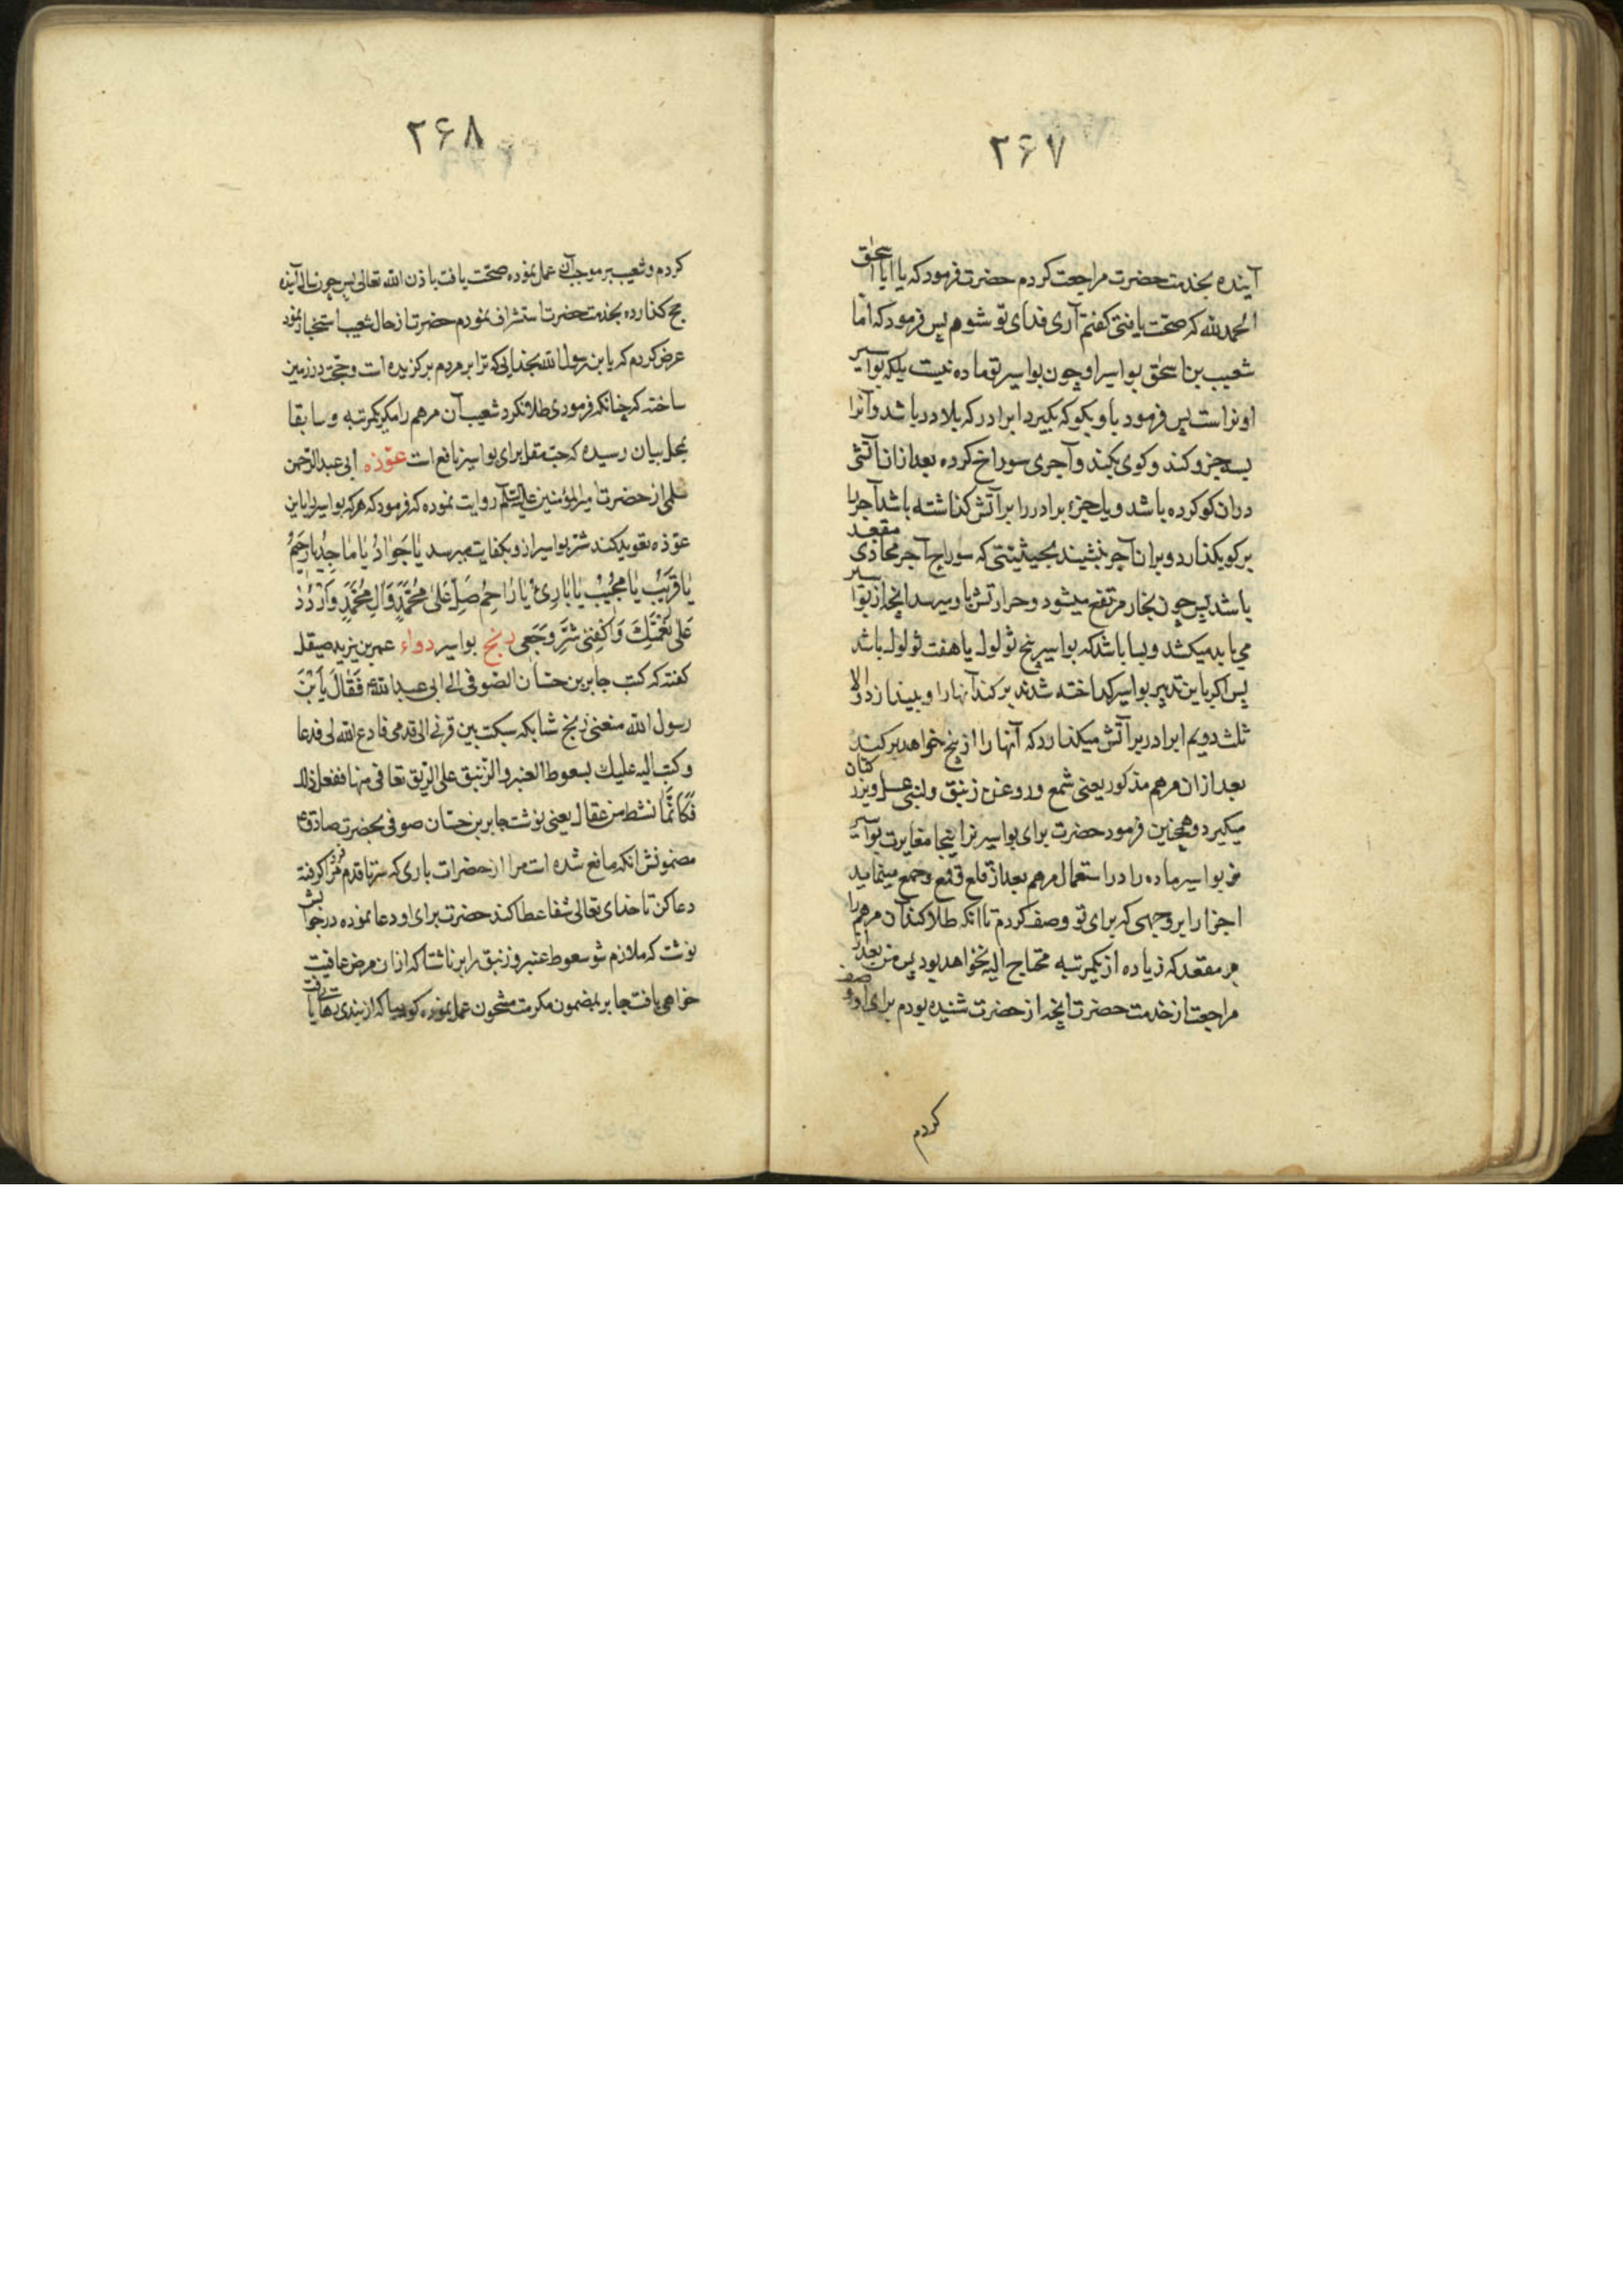 ۲۶۷
آینده بخدمت حضرت مراجعت کردم حضرت فرمود که یا ابا اسحق
الحمد لله که صحت یافتی گفتم آری فدای تو شوم پس فرمود که اما
شعیب بن اسحق بواسیر او چون بواسیر تو ماده نیست بلکه بواسیر
او نر است پس فرمود باو بگو که بگیرد ابرادر که بلادر باشد و آنرا
سه جزو کند و کوی بکند و آجری سوراخ کرده بعد ازان آتشی
دران کو کرده باشد و یک جزء برادر را بر آتش گذاشته باشد آجر را
بر کو بگذارد و بران آجر نشیند بحیثیتی که سوراخ آجر محاذی مقعد
باشد پس چون بخار مرتفع میشود و حرارتش باو میرسد انچه از بواسیر
می یابد میکشد و بسا باشد که بواسیر پنج ثولول یا هفت ثولول باشد
پس اگر باین تدبیر بواسیر گداخته شدند برکند آنها را و بیندازد و الا
ثلث دویم ابرادر بر آتش میگذارد که آنها را از بیخ خواهد برکند
بعد ازان مرهم مذکور یعنی شمع و روغن زنبق و لبنی عسل و بزر کتان
میگیرد و همچنین فرمود حضرت برای بواسیر نر اینجا مغایرت بواسیر
نر بواسیر ماده را در استعمال مرهم بعد از قلع و قمع و جمع مینمایید
اجزا را بر وجهی که برای تو وصف کردم تا انکه طلا کند آن مرهم را
بر مقعد که زیاده از یکمرتبه محتاج الیه نخواهد بود پس من بعد از
مراجعت از خدمت حضرت انچه از حضرت شنیده بودم برای او وصف
کردم
۲۶۸
کردم و شعیب بر موجب آن عمل نموده صحت یافت باذن الله تعالی پس چون سال آینده
حج گذارده بخدمت حضرت استشراف نمودم حضرت از حال شعیب استخبار نمود
عرض کردم که یا بن رسول الله بخدایی که ترا بر مردم برگزیده است و حجت در زمین
ساخته که چنانکه فرمودی طلا نکرد شعیب آن مرهم را مگر یکمرتبه و سابقا
بمحل بیان رسیده که حب مقل برای بواسیر نافع است عوذه ابی عبد الرحمن
سلمی از حضرت امیر المؤمنین علیه السلام روایت نموده که فرمود که هر که بواسیر را باین
عوذه تعوید کند شر بواسیر ازو بکفایت میرسد یَا جَوَادُ یَا مَاجِدُ یَا رَحِیمُ
یَا قَرِیبُ یَا مُجِیبُ یَا بَارِئُ یَا رَاحِمُ صَلِّ عَلیٰ مُحَمَّدٍ وَآلِ مُحَمَّدٍ وَارْدُدْ
عَلَی نِعْمَتِكَ وَاكْفِنِی شَرَّ وَجَعِی ریح بواسیر دواء عمر بن یزید صیقل
گفته که کتب جابر بن حسان الصوفی الی ابی عبد الله ع فَقَالَ یَا بْنَ
رسول الله منعنی ریح شابکه سبکت بین قرنی الی قدمی فادع الله لی فدعا
و کتب الیه علیك بسعوط العنبر و الزنبق علی الریق تعافی منها ففعل ذلك
فَكَاَنَّمَا نشط من عقال یعنی نوشت جابر بن حسان صوفی بحضرت صادق ع
مضمونش انکه مانع شده است مرا از حضرات بادی که سر تا قدم مرا فرو گرفته
دعا کن تا خدای تعالی شفا عطا کند حضرت برای او دعا نموده در جوابش
نوشت که ملازم شو سعوط عنبر و زنبق را بر ناشتا که ازان مرض عافیت
خواهی یافت جابر بمضمون مکرمت مشحون عمل نموده کوییا که از بندی رهایی یافت